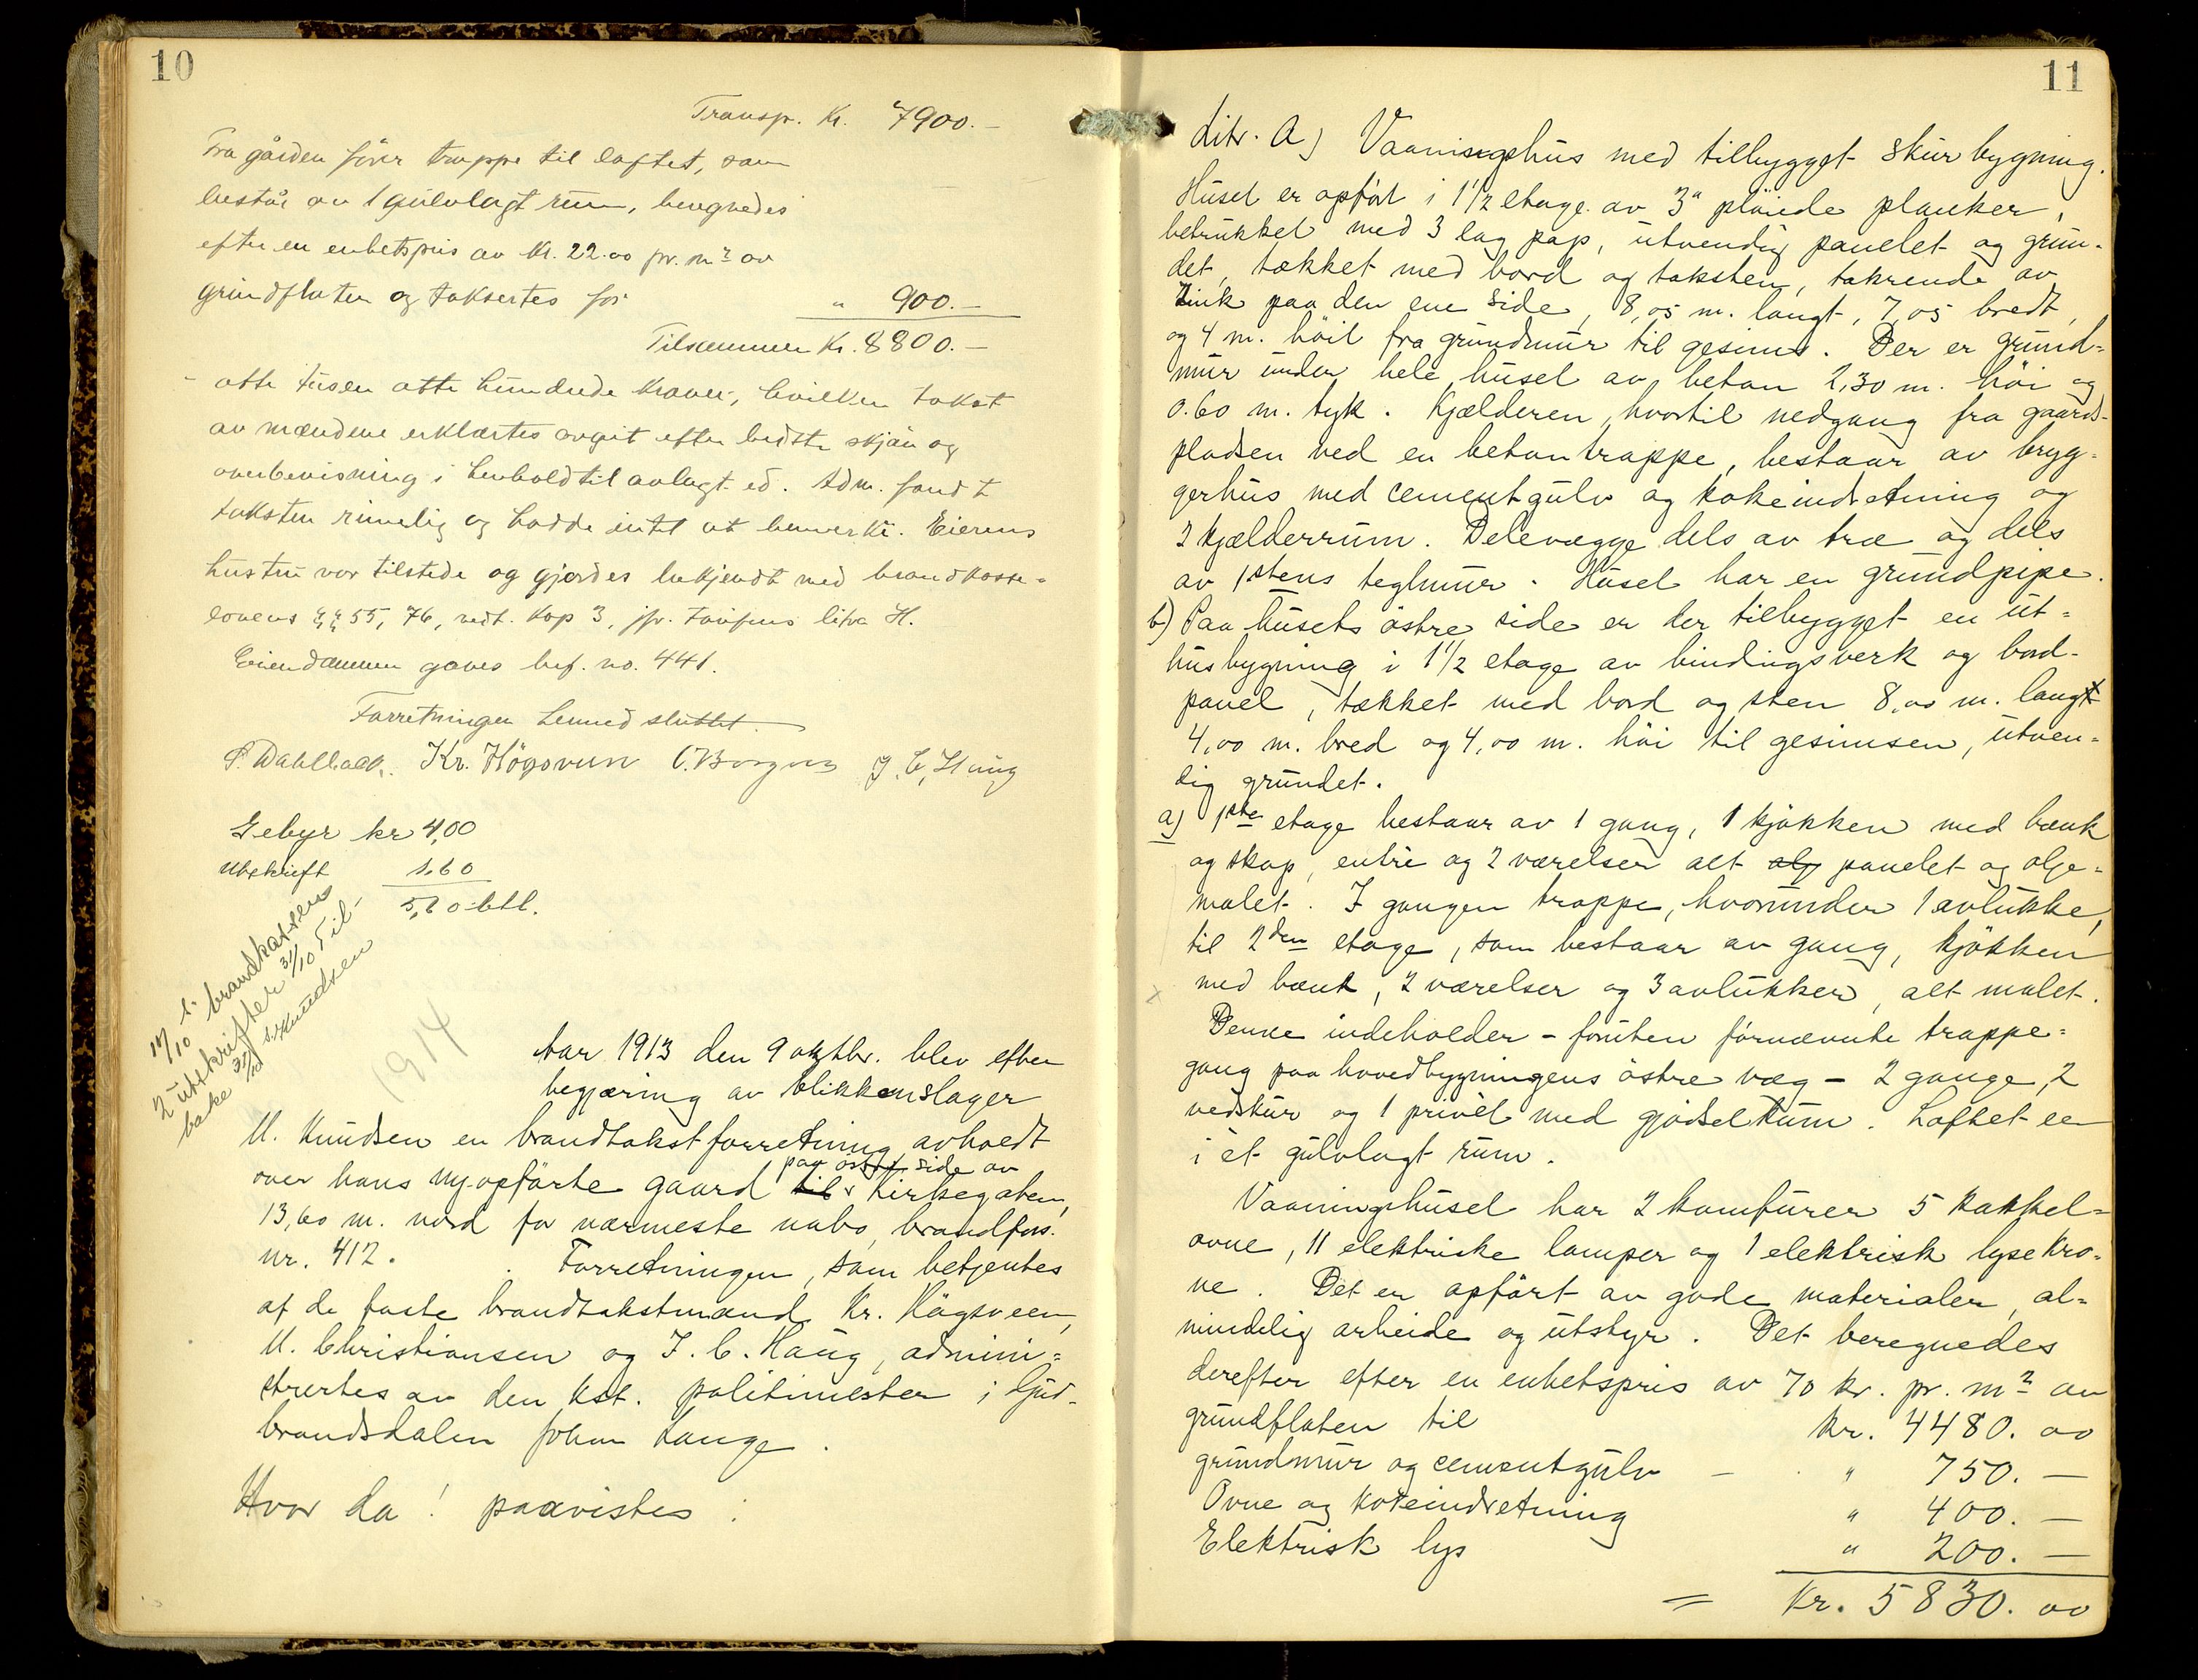 10
Transp. Kr. 7900.-
Fra gården förer trappe til loftet, som
består av 1 gulvlagt rum, beregnedes
efter en enhetspris av kr. 22.00 pr. m² av
grundflaten og taksertes for " 900.-
Tilsammen Kr. 8800.-
- otte tusen otte hundrede kroner, hvilken takst
av mændene erklærtes avgit efter bedste skjön og
overbevisning i henhold til avlagt ed. Adm. fandt
taksten rimelig og hadde intet at bemerke. Eierens
hustru var tilstede og gjordes bekjendt med brandkasse-
lovens §§ 55, 76, vedt. kap 3, jfr. tariffens litra H.
Eiendommen gaves bref. no. 441.
Forretningen hermed sluttet.
P. Dahlback. Kr. Högsveen O. Borgen J. C. Haug
Gebyr kr 4,00
Utskrift 1.60
5,60 btl.
14/10 i brandkassens
2 utskrifter 31/10 Til-
bake 31/10 Knudsen
1914
Aar 1913 den 9 oktbr. blev efter
begjæring av blikkenslager
M. Knudsen en brandtakstforretning avholdt
paa östre side av
over hans ny-opförte gaard til Kirkegaten,
13,60 m. nord for nærmeste nabo, brandfors.
nr. 412. Forretningen, som betjentes
af de faste brandtakstmænd Kr. Högsveen,
M. Christiansen og J. C. Haug, admini=
strertes av den kst. politimester i Gud-
brandsdalen Johan Lange.
Hvor da! paavistes :
11
Litr. A) Vaaningshus med tilbygget skurbygning.
Huset er opfört i 1 1/2 etage av 3" plöiede planker,
betrukket med 3 lag pap, utvendig panelet og grun-
det, tækket med bord og taksten, takrende av
Zink paa den ene side, 8,05 m. langt, 7,05 bredt,
og 4 m. höit fra grundmur til gesims. Der er grund=
mur under hele huset av beton 2,30 m. höi og
0.60 m. tyk. Kjælderen, hvortil nedgang fra gaards-
pladsen ved en betontrappe, bestaar av bryg-
gerhus med cementgulv og kokeindretning og
2 kjælderrum. Delevægge dels av træ og dels
av 1 stens teglmur. Huset har en grundpipe.
b) Paa husets östre side er der tilbygget en ut=
husbygning i 1 1/2 etage av bindingsverk og bord-
panel, tækket med bord og sten 8,00 m. langt
4,00 m. bred og 4,00 m. höi til gesimsen, utven=
dig grundet.
a) 1ste etage bestaar av 1 gang, 1 kjökken med bænk
og skap, entré og 2 værelser alt olj panelet og olje=
malet. I gangen trappe, hvorunder 1 avlukke,
til 2den etage, som bestaar av gang, kjökken
x med bænk, 2 værelser og 3 avlukker, alt malet.
Denne indeholder - foruten förnævnte trappe=
gang paa hovedbygningens östre væg - 2 gange, 2
vedskur og 1 privét med gjödselrum. Loftet er
i ét gulvlagt rum.
Vaaningshuset har 2 komfurer 5 kakkel=
ovne, 11 elektriske lamper og 1 elektrisk lysekro=
ne. Det er opfört av gode materialer, al=
mindelig arbeide og utstyr. Det beregnedes
derefter efter en enhetspris av 70 kr. pr. m² av
grundflaten til kr. 4480. 00
grundmur og cementgulv - " 750. -
Ovne og kokeindretning " 400. -
Elektrisk lys " 200. -
= Kr. 5830. 00